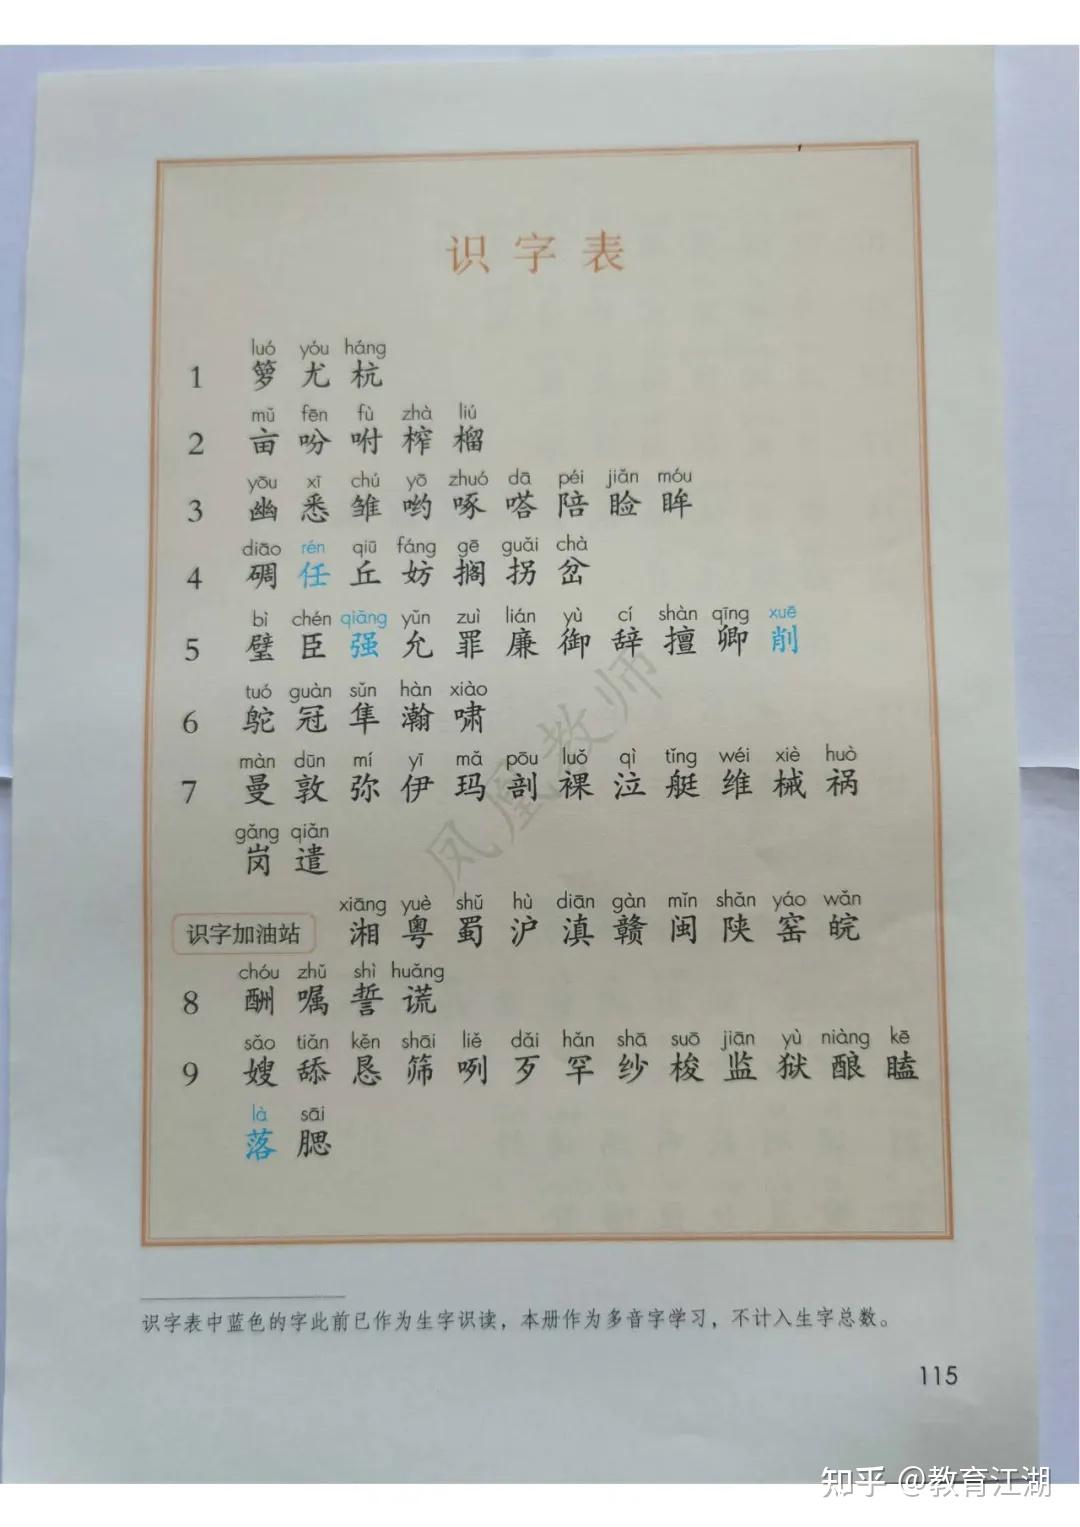 识字表
luó yóu háng
1 箩 尤 杭
mǔ fēn fù zhà liú
2 亩 吩 咐 榨 榴
yōu xī chú yō zhuó dā péi jiǎn móu
3 幽 悉 雏 哟 啄 嗒 陪 睑 眸
diāo rén qiū fáng gē guǎi chà
4 碉 任 丘 妨 搁 拐 岔
bì chén qiǎng yǔn zuì lián yù cí shàn qīng xuē
5 璧 臣 强 允 罪 廉 御 辞 擅 卿 削
tuó guàn sǔn hàn xiào
6 鸵 冠 隼 瀚 啸
màn dūn mí yī mǎ pōu luǒ qì tǐng wéi xiè huò
7 曼 敦 弥 伊 玛 剖 裸 泣 艇 维 械 祸
gǎng qiǎn
岗 遣
xiāng yuè shǔ hù diān gàn mǐn shǎn yáo wǎn
识字加油站 湘 粤 蜀 沪 滇 赣 闽 陕 窑 皖
chóu zhǔ shì huǎng
8 酬 嘱 誓 谎
sǎo tiǎn kěn shāi liě dǎi hǎn shā suō jiān yù niàng kē
9 嫂 舔 恳 筛 咧 歹 罕 纱 梭 监 狱 酿 瞌
là sāi
落 腮
凤凰教师
识字表中蓝色的字此前已作为生字识读，本册作为多音字学习，不计入生字总数。
115
知乎 @教育江湖